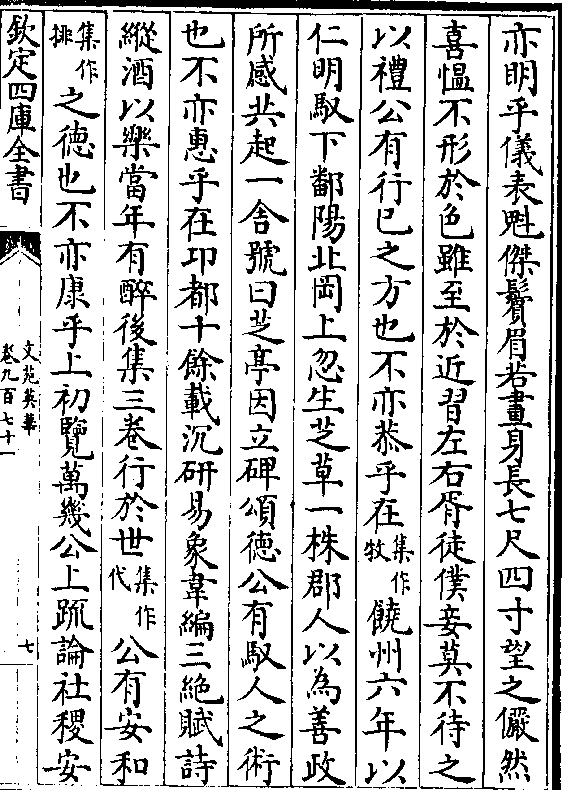 亦明乎儀表魁傑鬢眉若畫身長七尺四寸望之儼然
喜慍不形於色雖至於近習左右胥徒僕妾莫不待之
以禮公有行已之方也不亦恭乎在集作牧饒州六年以
仁明馭下鄱陽北岡上忽生芝草一株郡人以為善政
所感共起一舍號曰芝亭因立碑頌德公有馭人之術
也不亦惠乎在卭都十餘載沉研易象韋編三絶賦詩
縱酒以樂當年有醉後集三卷行於世集作代公有安和
集作排之德也不亦康乎上初覽萬幾公上疏論社稷安
欽定四庫全書
文苑英華
卷九百七十一
七